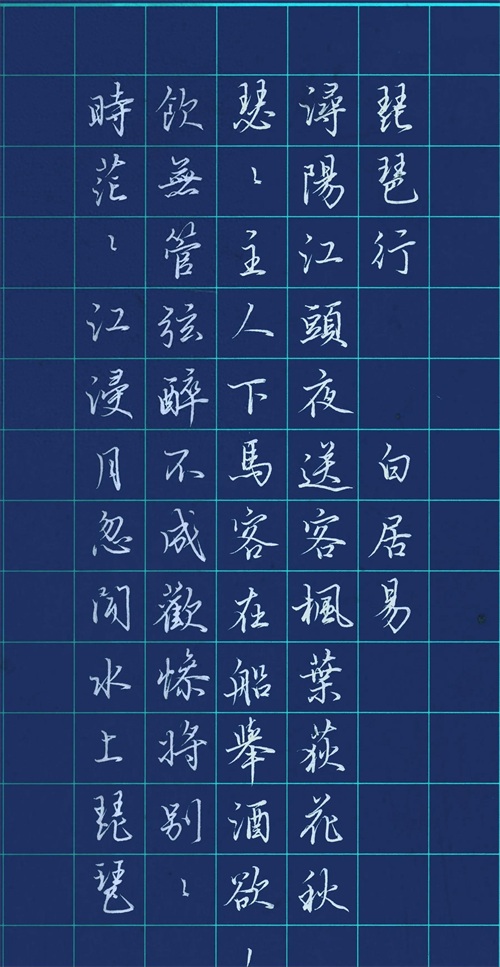 琵琶行 白居易
潯陽江頭夜送客楓葉荻花秋
瑟〻主人下馬客在船舉酒欲
飲無管弦醉不成歡慘將別〻
時茫〻江浸月忽聞水上琵琶